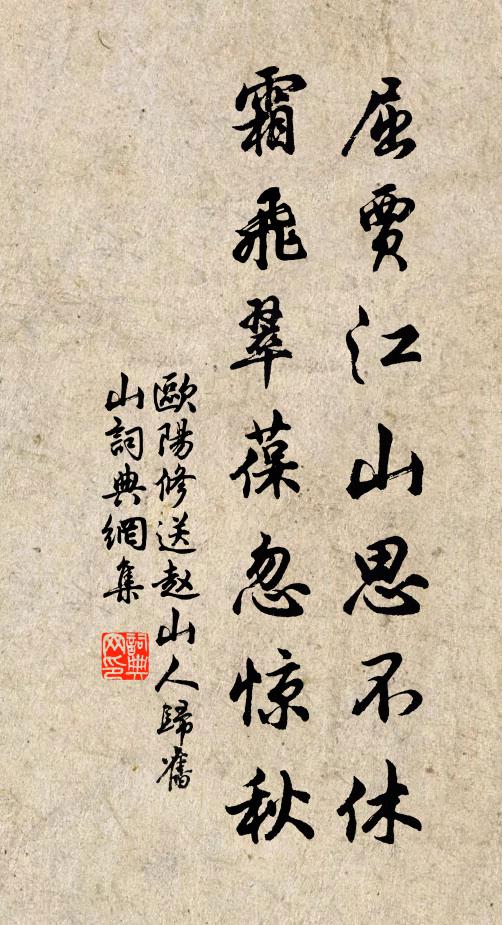 屈贾江山思不休
霜飛翠葆忽惊秋
歐陽修送赵山人歸舊
山詞典網集
詞典
网印